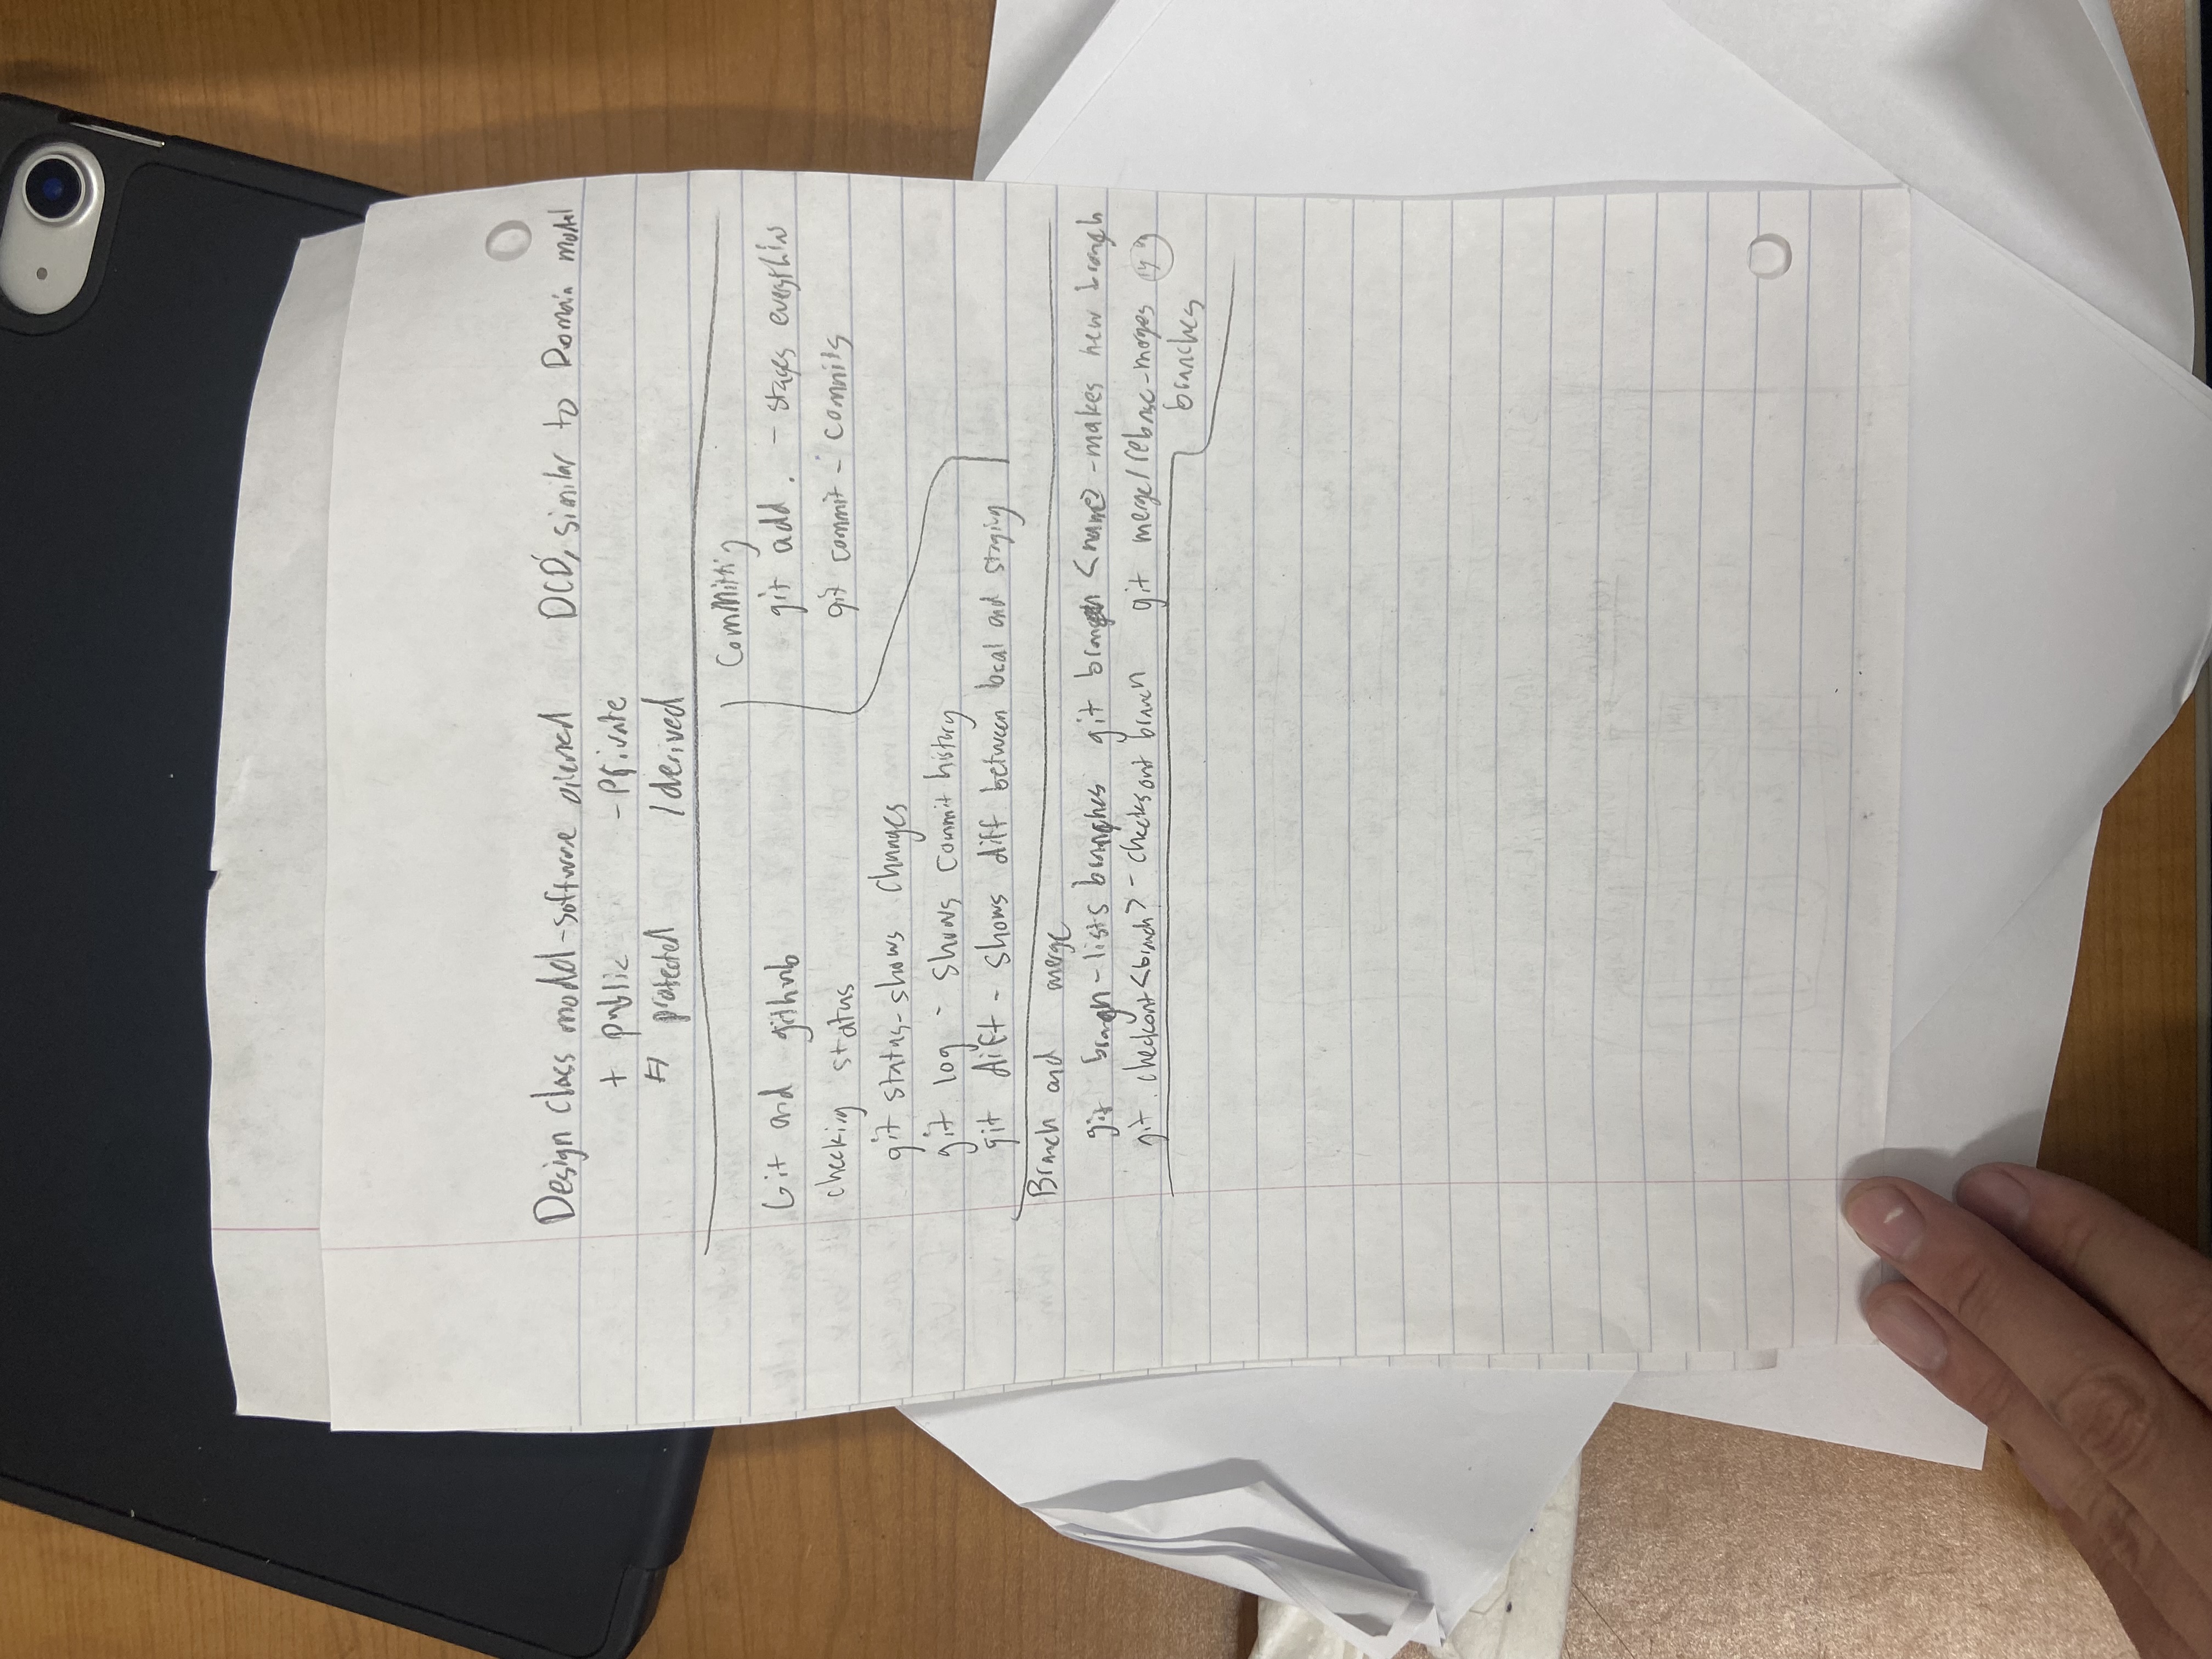 Design class model - software oriened DCD, similar to Domain model
+ public - Private
# protected / derived
Git and github
checking status
git status - shows changes
git log - shows commit history
git diff - shows diff between local and staging
Committig
git add . - stages everything
git commit - commits
Branch and merge
git branch - lists branches git branch <name> - makes new branch
git checkout <branch> - checks out branch git merge/rebase - merges
branches